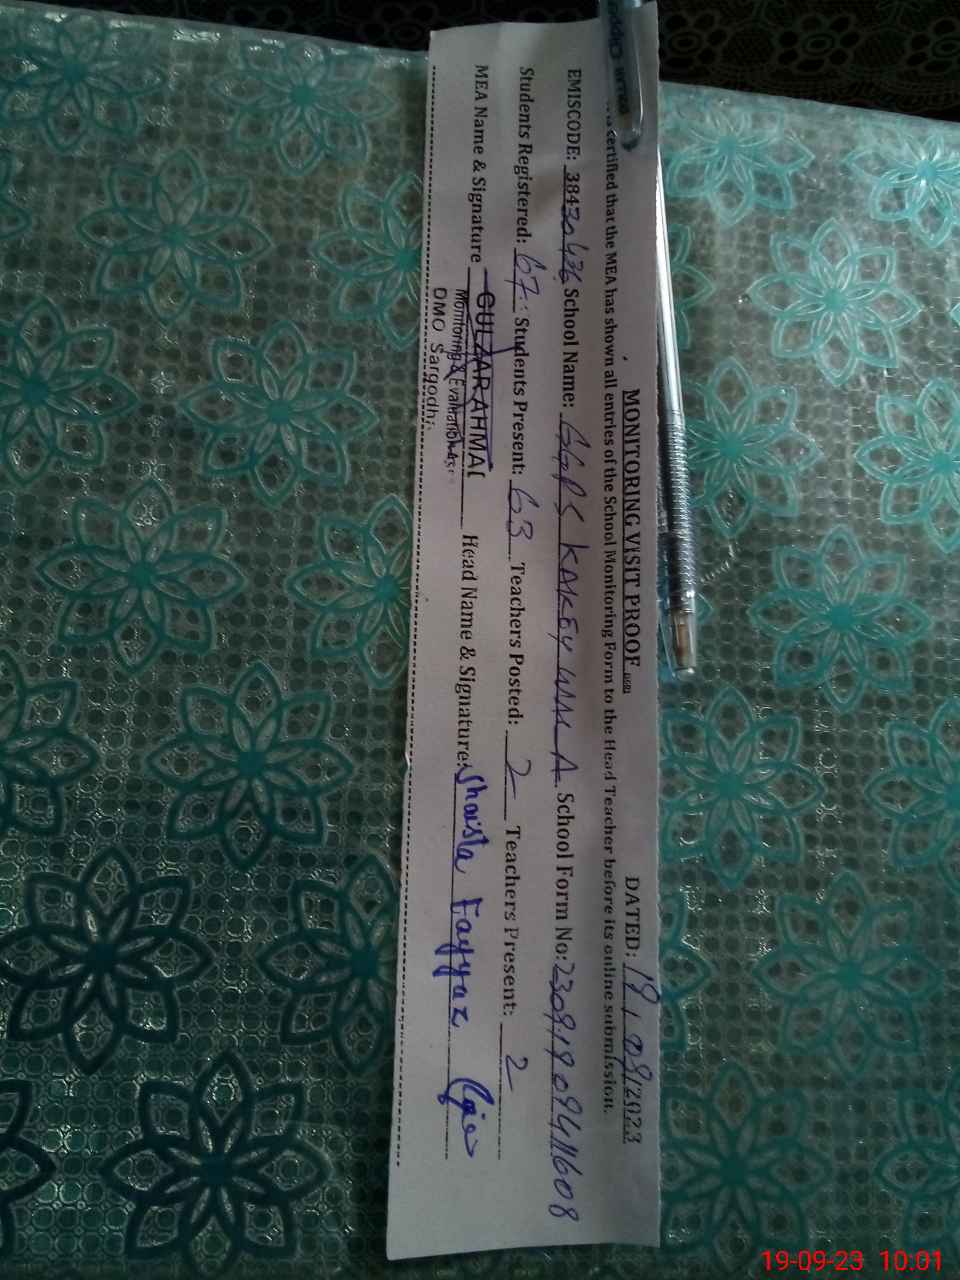 MONITORING VISIT PROOF DATED: 19/09/2023
certified that the MEA has shown all entries of the School Monitoring Form to the Head Teacher before its online submission.
EMISCODE: 38430436 School Name: GGPS KAKEY WALA School Form No: 2309190941608
Students Registered: 67 Students Present: 63 Teachers Posted: 2 Teachers Present: 2
MEA Name & Signature GULZAR AHMA Head Name & Signature: Shaista Fayyaz
Monitoring & Evaluation
DMO Sargodh
19-09-23 10:01